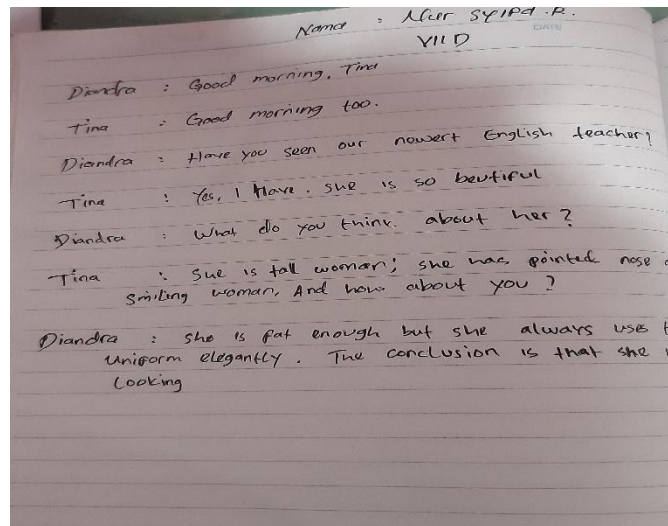 Nama : Nur Syifa .R.
VII D
DATE
Diandra : Good morning, Tina
Tina : Good morning too.
Diandra : Have you seen our nowert English teacher?
Tina : Yes, I Have. she is so beutiful
Diandra : What do you think. about her?
Tina : Sue is tall woman; she has pointed nose
smiling woman, And how about you ?
Diandra : she is fat enough but she always uses
uniform elegantly. The conclusion is that she
looking